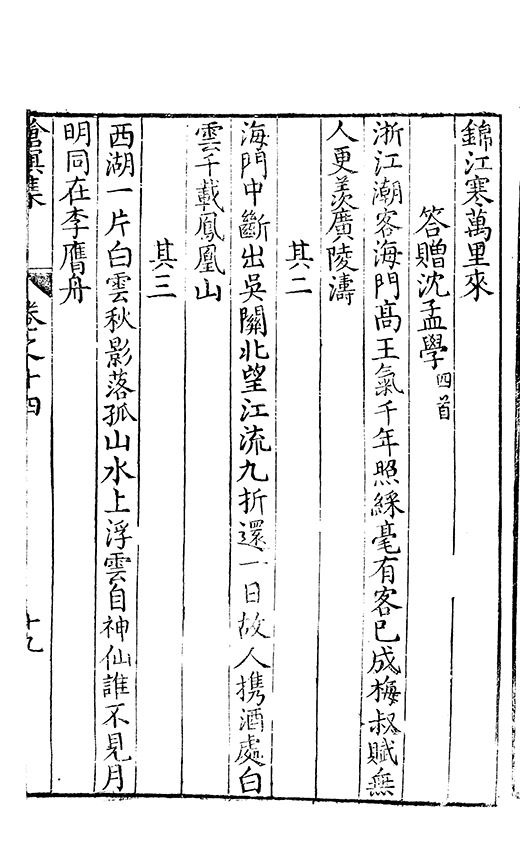 錦江寒萬里來
答贈沈孟學四首
浙江潮客海門高王氣千年照綵毫有客已成梅叔賦無
人更羨廣陵濤
其二
海門中斷出吳關北望江流九折還一日故人携酒處白
雲千載鳳凰山
其三
西湖一片白雲秋影落孤山水上浮雲自神仙誰不見月
明同在李膺舟
滄溟集 卷之十四 十九